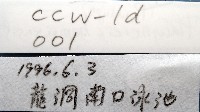 ccw-1d
001
1996.6.3
龍洞南口泳池